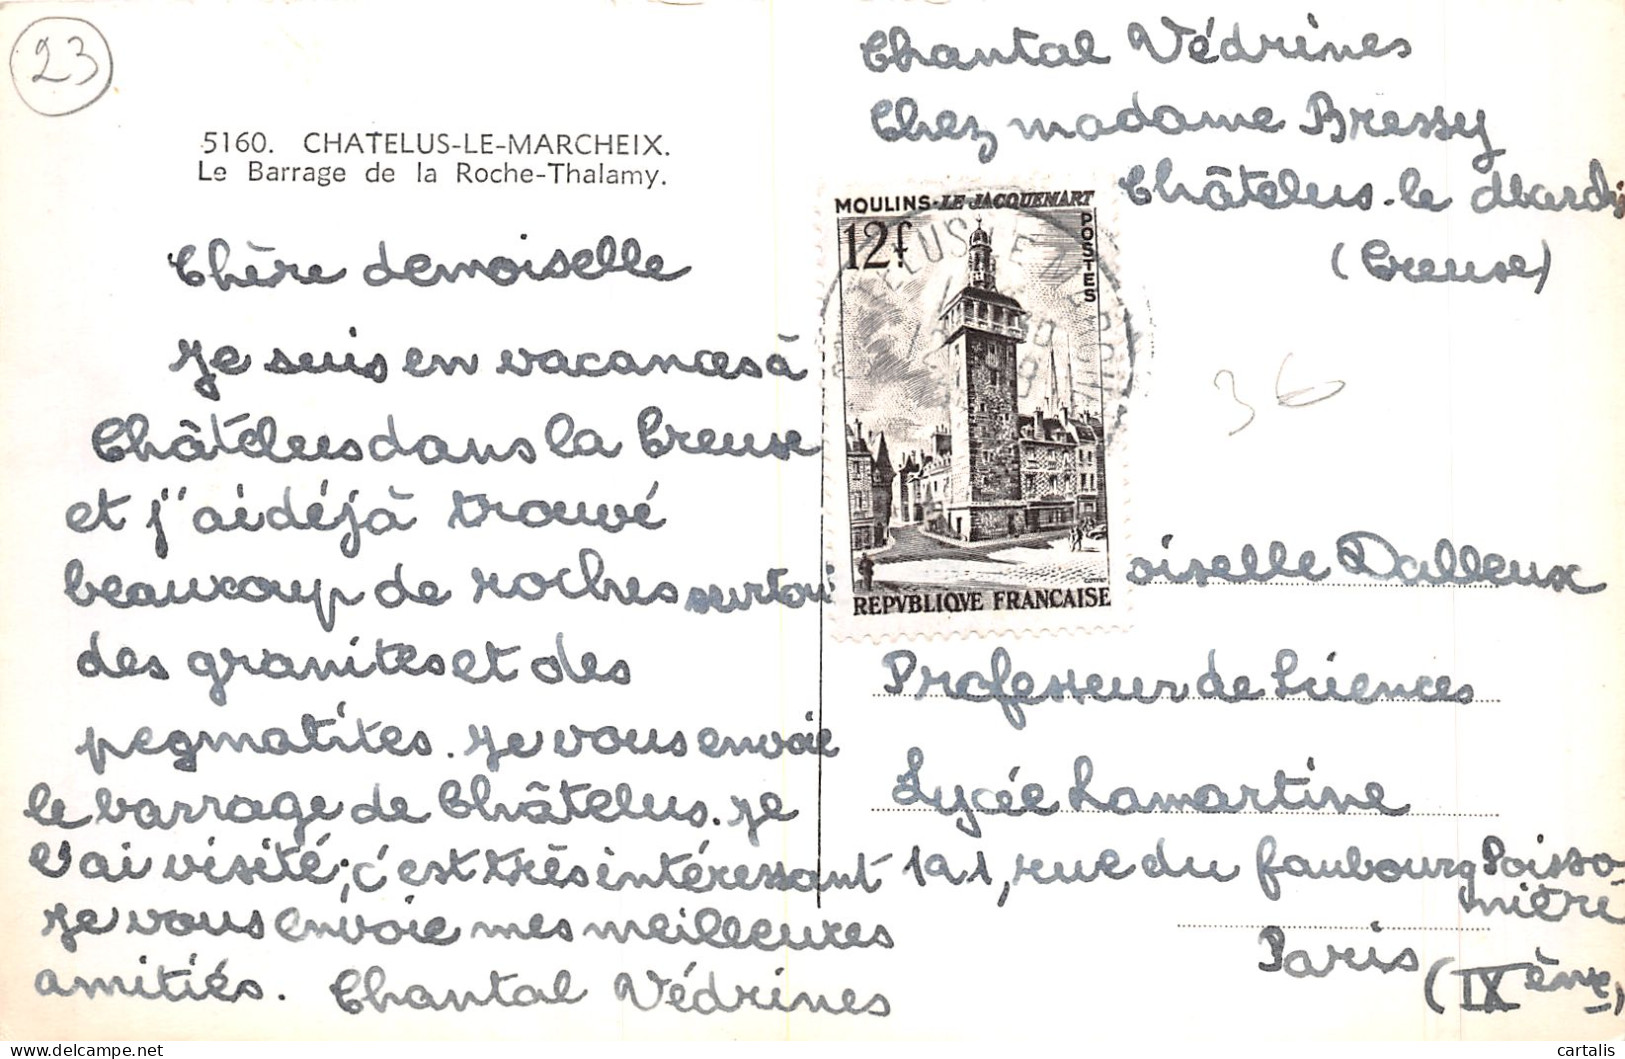 23
5160. CHATELUS-LE-MARCHEIX.
Le Barrage de la Roche-Thalamy.
Chère demoiselle
Je suis en vacances à
Châtelus dans la Creuse
et j'ai déjà trouvé
beaucoup de roches surtout
des granites et des
pegmatites. Je vous envoie
le barrage de Châtelus. Je
l'ai visité; c'est très intéressant
Je vous envoie mes meilleures
amitiés. Chantal Védrines
Chantal Védrines
Chez madame Bressy
Châtelus-le March
(Creuse)
MOULINS-LE JACQUEMART
12f
POSTES
REPVBLIQVE FRANCAISE
36
oiselle Dalleux
Professeur de Sciences
Lycée Lamartine
121, rue du faubourg Poisso-
nnière
Paris (IXème)
cartalis